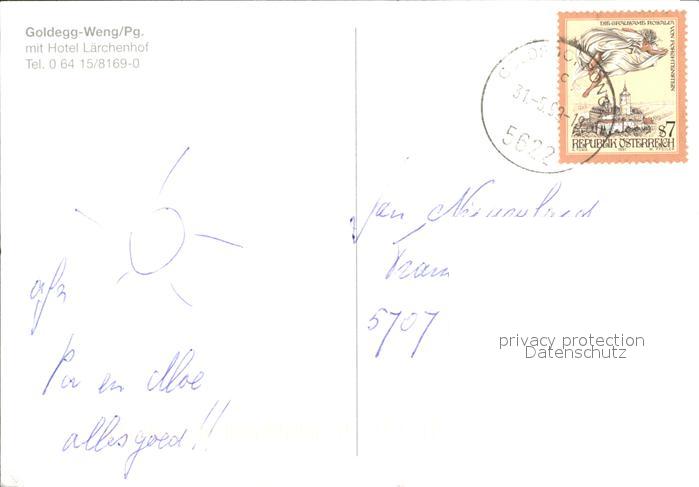 Goldegg-Weng/Pg.
mit Hotel Lärchenhof
Tel. 0 64 15/8169-0
DIE GRAUSAME ROSALIA
VON FORCHTENSTEIN
S7
REPUBLIK ÖSTERREICH
5622
afz
Pa en Moe
alles goed!!
Jan
5707
privacy protection
Datenschutz